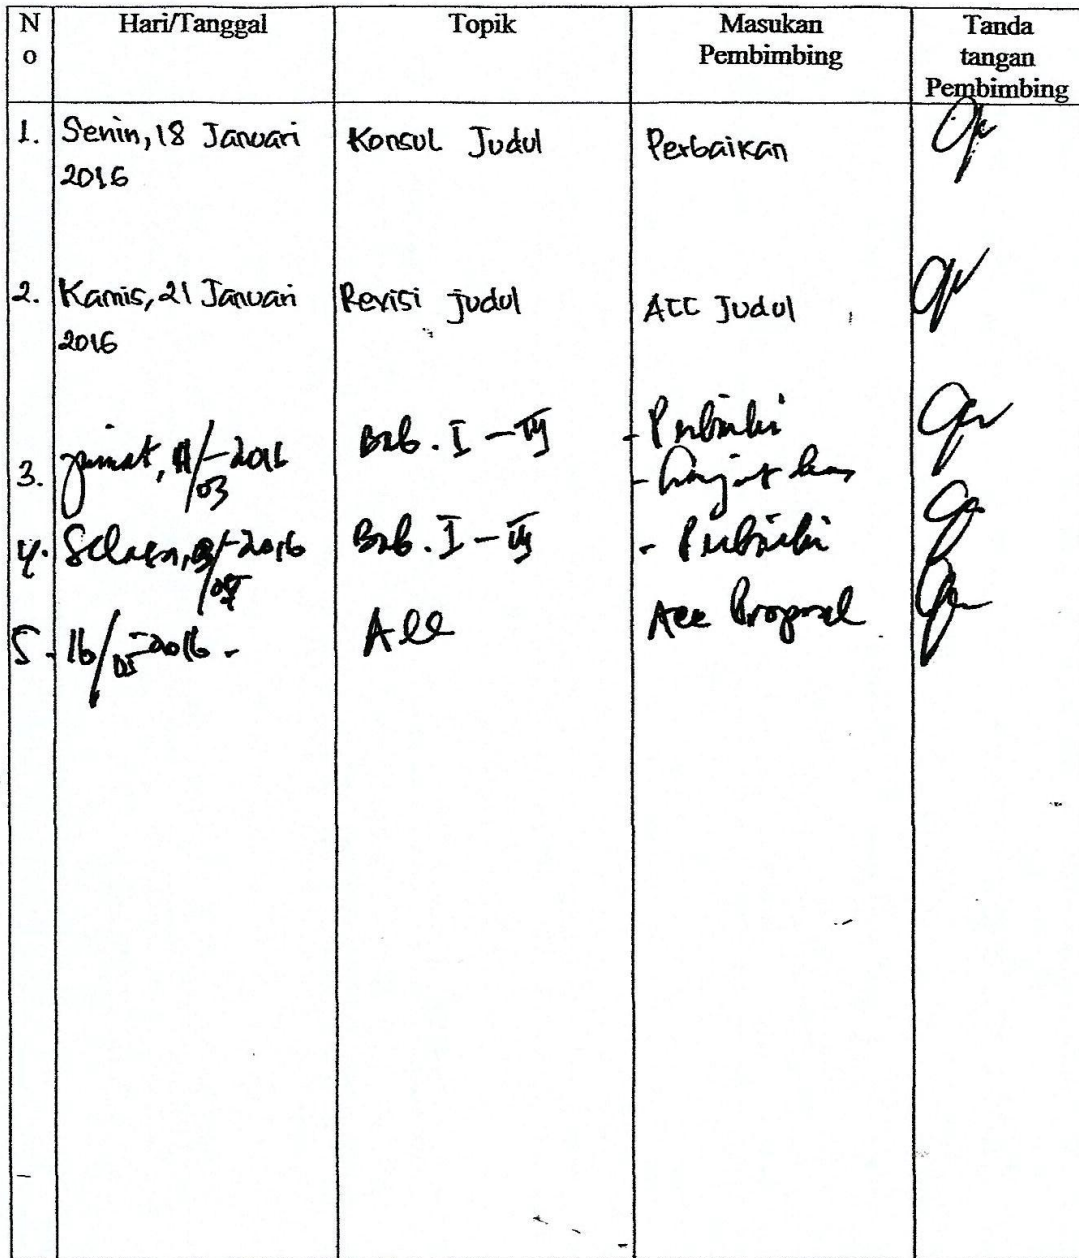 No Hari/Tanggal Topik Masukan Pembimbing Tanda tangan Pembimbing
1. Senin, 18 Januari 2016 Konsul Judul Perbaikan
2. Kamis, 21 Januari 2016 Revisi judul ACC Judul
3. Jumat, 11/03-2016 Bab. I - - Perbaiki
- Lanjut
4. Selasa, 2016 Bab. I - - Perbaiki
5. 16/05-2016 - Acc Acc Proposal